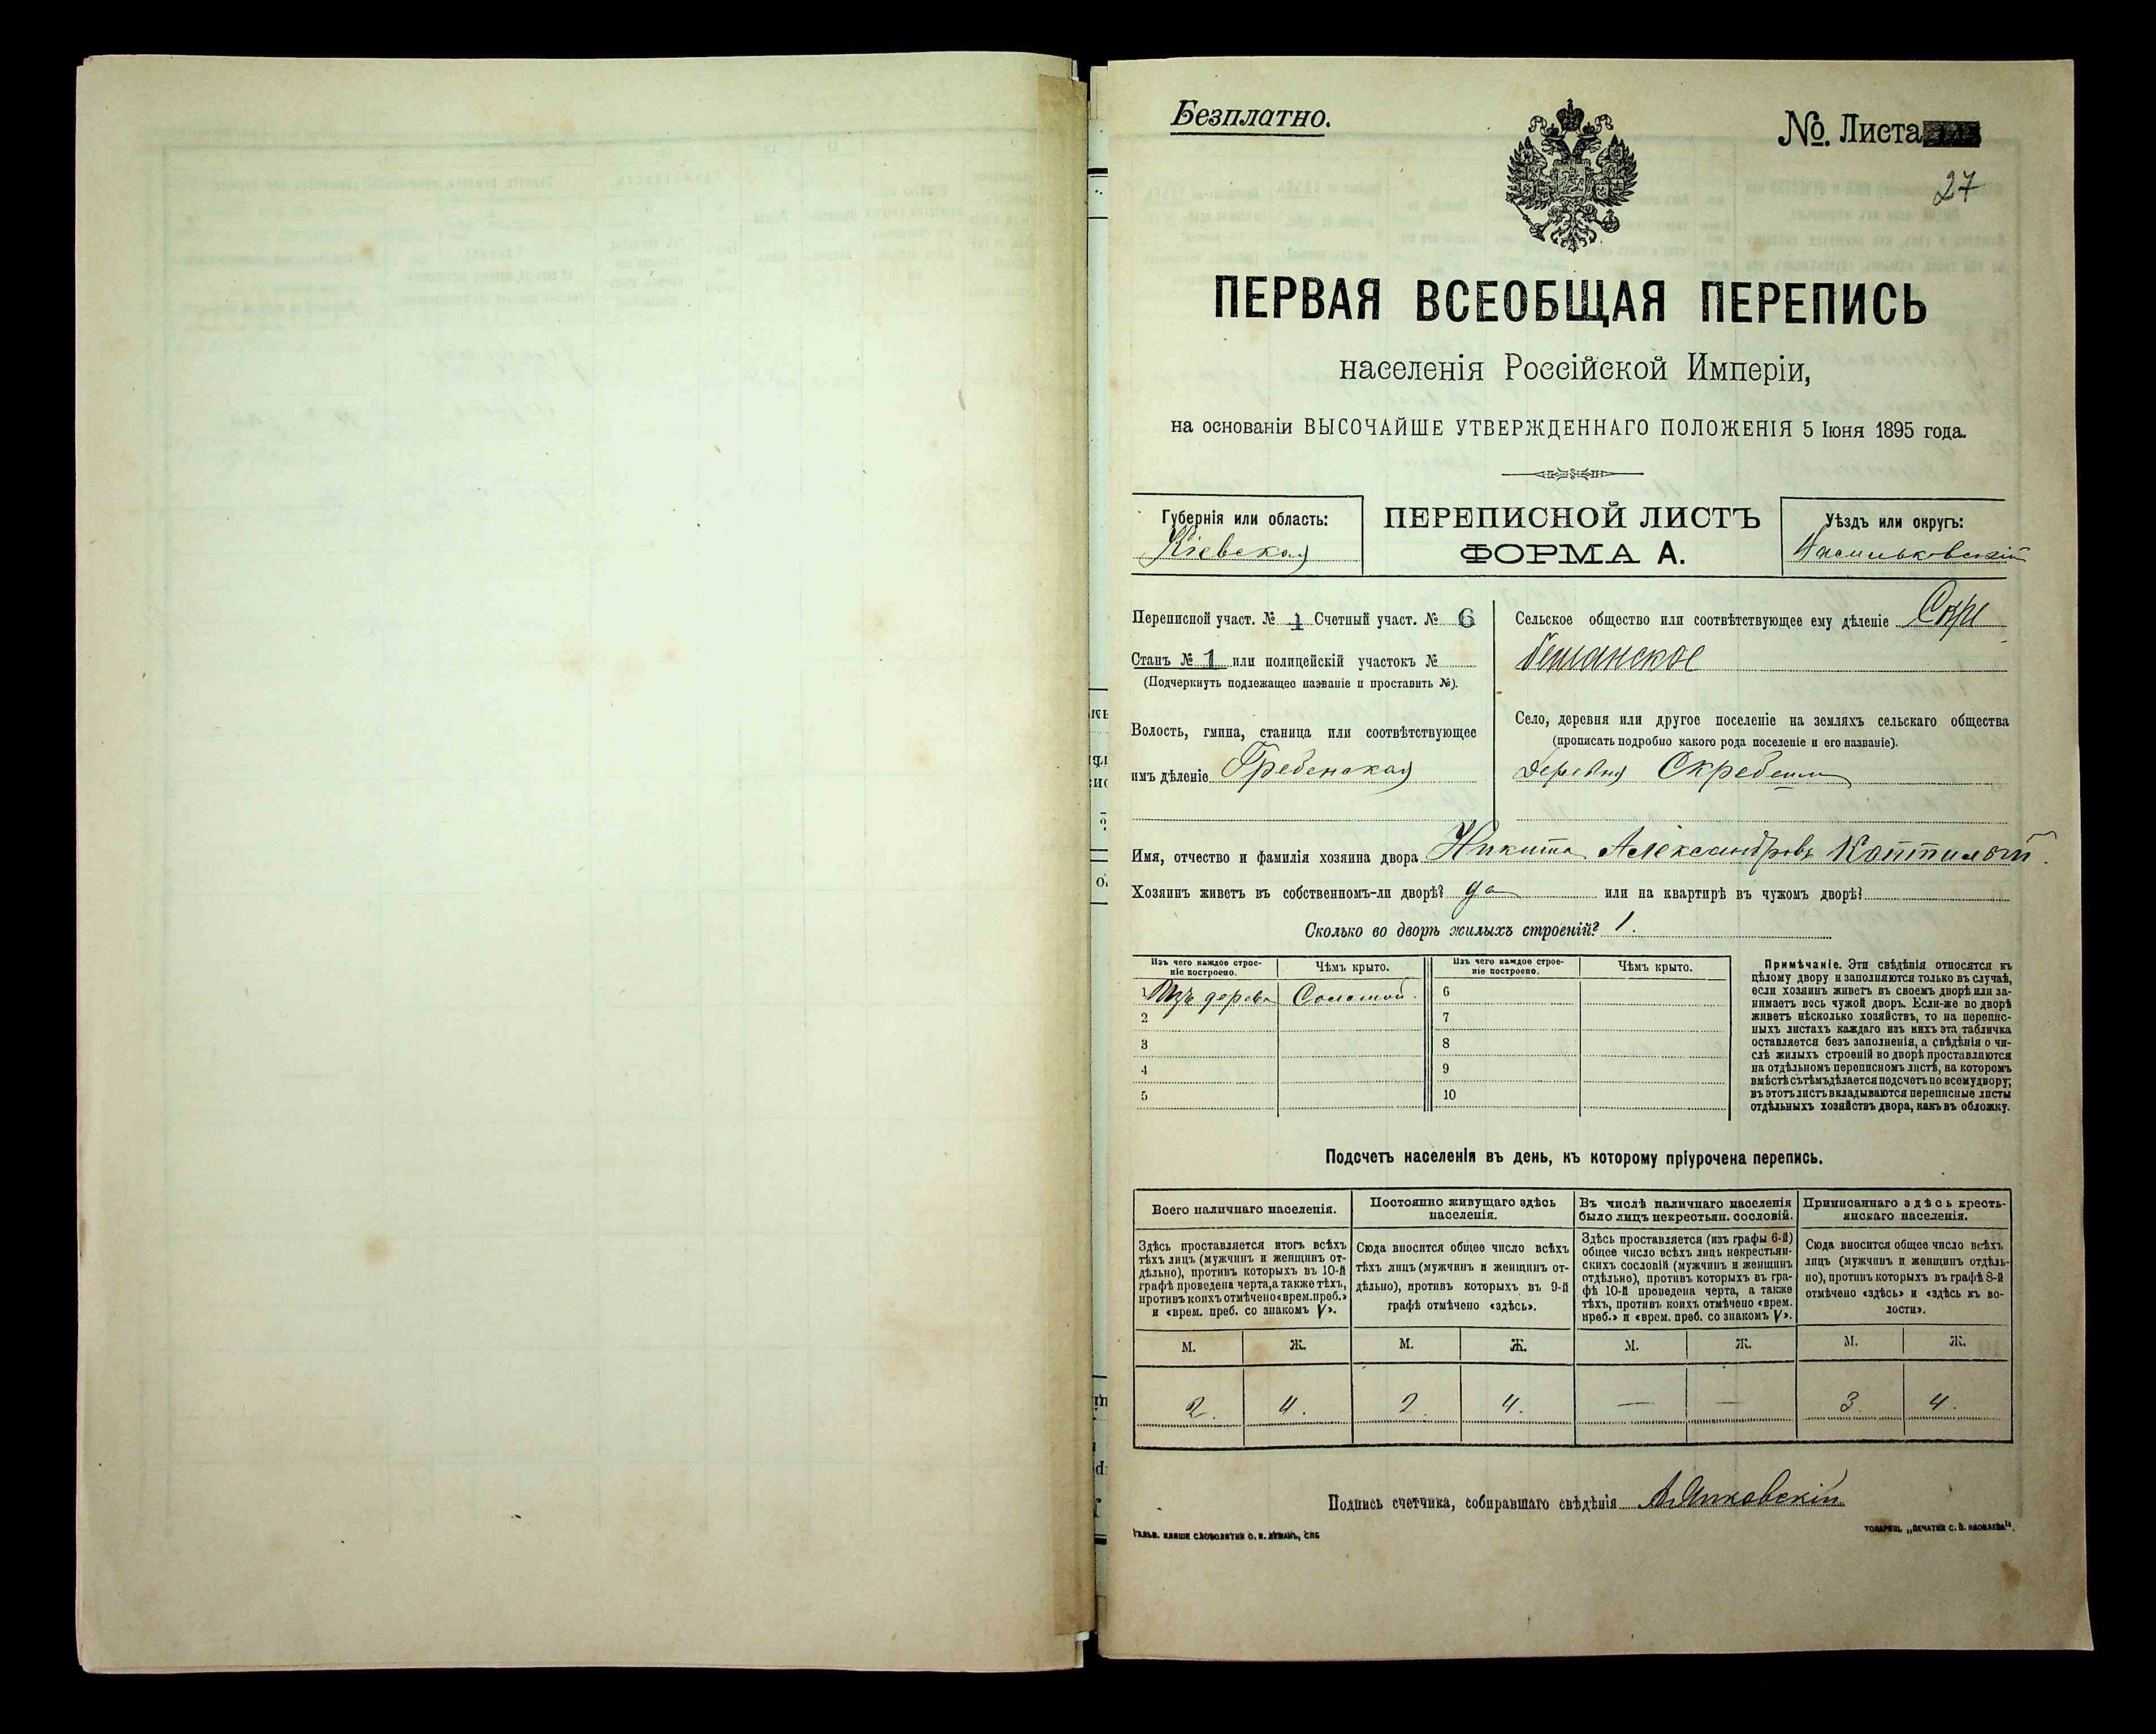 Безплатно.
№. Листа
27
ПЕРВАЯ ВСЕОБЩАЯ ПЕРЕПИСЬ
населенія Россійской Имперіи,
на основаніи ВЫСОЧАЙШЕ УТВЕРЖДЕННАГО ПОЛОЖЕНІЯ 5 Іюня 1895 года.
Губернія или область:
Кіевская
ПЕРЕПИСНОЙ ЛИСТЪ
ФОРМА А.
Уѣздъ или округъ:
Васильковскій
Переписной участ. № 1 Счетный участ. № 6
Станъ № 1 или полицейскій участокъ №
(Подчеркнуть подлежащее названіе и проставить №).
Волость, гмина, станица или соотвѣтствующее
имъ дѣленіе Гребенская
Сельское общество или соотвѣтствующее ему дѣленіе Скре
бешанское
Село, деревня или другое поселеніе на земляхъ сельскаго общества
(прописать подробно какого рода поселеніе и его названіе).
деревня Скребеши
Имя, отчество и фамилія хозяина двора Никита Александровъ
Хозяинъ живетъ въ собственномъ-ли дворѣ? да или на квартирѣ въ чужомъ дворѣ?
Сколько во дворѣ жилыхъ строеній? 1.
Изъ чего каждое строе-
ніе построено.
Чѣмъ крыто.
Изъ чего каждое строе-
ніе построено.
Чѣмъ крыто.
1 Изъ дерева Соломой. 6
2 7
3 8
4 9
5 10
Примѣчаніе. Эти свѣдѣнія относятся къ
цѣлому двору и заполняются только въ случаѣ,
если хозяинъ живетъ въ своемъ дворѣ или за-
нимаетъ весь чужой дворъ. Если-же во дворѣ
живетъ нѣсколько хозяйствъ, то на перепис-
ныхъ листахъ каждаго изъ нихъ эта табличка
оставляется безъ заполненія, а свѣдѣнія о чи-
слѣ жилыхъ строеній во дворѣ проставляются
на отдѣльномъ переписномъ листѣ, на которомъ
вмѣстѣ съ тѣмъ дѣлается подсчетъ по всему двору;
въ этотъ листъ вкладываются переписные листы
отдѣльныхъ хозяйствъ двора, какъ въ обложку.
Подсчетъ населенія въ день, къ которому пріурочена перепись.
Всего наличнаго населенія.
Здѣсь проставляется итогъ всѣхъ
тѣхъ лицъ (мужчинъ и женщинъ от-
дѣльно), противъ которыхъ въ 10-й
графѣ проведена черта, а также тѣхъ,
противъ коихъ отмѣчено «врем. преб.»
и «врем. преб. со знакомъ V».
Постоянно живущаго здѣсь
населенія.
Сюда вносится общее число всѣхъ
тѣхъ лицъ (мужчинъ и женщинъ от-
дѣльно), противъ которыхъ въ 9-й
графѣ отмѣчено «здѣсь».
Въ числѣ наличнаго населенія
было лицъ некрестьян. сословій.
Здѣсь проставляется (изъ графы 6-й)
общее число всѣхъ лицъ некрестьян-
скихъ сословій (мужчинъ и женщинъ
отдѣльно), противъ которыхъ въ гра-
фѣ 10-й проведена черта, а также
тѣхъ, противъ коихъ отмѣчено «врем.
преб.» и «врем. преб. со знакомъ V».
Приписаннаго здѣсь кресть-
янскаго населенія.
Сюда вносится общее число всѣхъ
лицъ (мужчинъ и женщинъ отдѣль-
но), противъ которыхъ въ графѣ 8-й
отмѣчено «здѣсь» и «здѣсь къ во-
лости».
М. Ж. М. Ж. М. Ж. М. Ж.
2. 4. 2. 4. — — 3 4.
Подпись счетчика, собиравшаго свѣдѣнія
ГАЛЬВ. КЛИШЕ СЛОВОЛИТНИ О. И. ЛЕМАНЪ, СПБ
ТОВАРИЩ. „ПЕЧАТНЯ С. П. ЯКОВЛЕВА“.